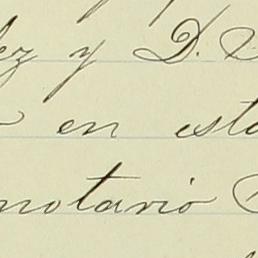 ez y D.
en esta
notario